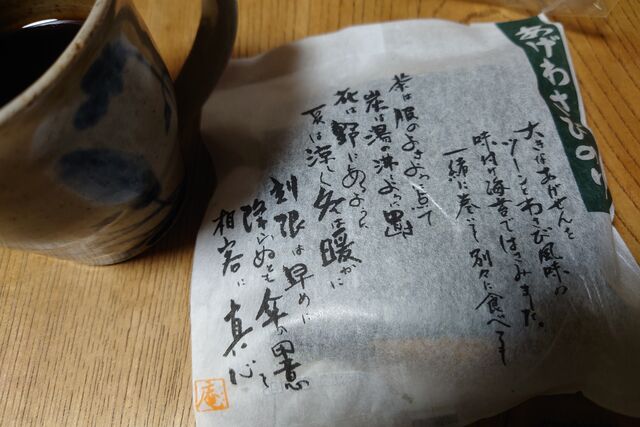 あげわさびのり
大きなあげせんを
ツーンとわさび風味の
味付け海苔ではさみました。
一緒に巻いても別々に食べても
茶は服のよきように点て
炭は湯の沸くように置き
花は野にあるように
夏は涼しく冬は暖かに
刻限は早めに
降らぬとも傘の用意
相客に真心を
庵